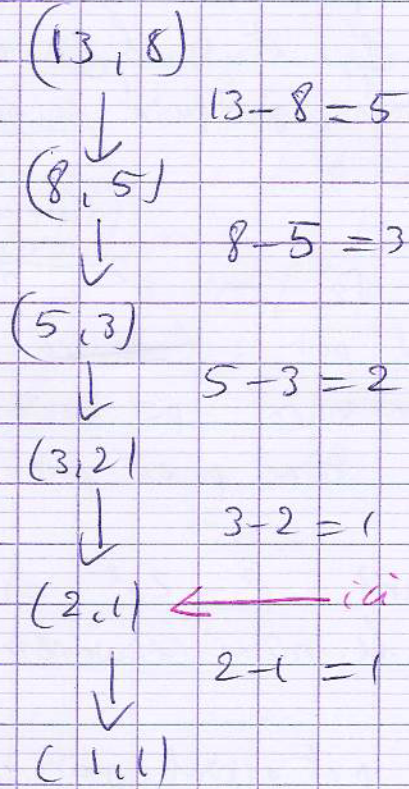 (13, 8)
13 - 8 = 5
(8, 5)
8 - 5 = 3
(5, 3)
5 - 3 = 2
(3, 2)
3 - 2 = 1
(2, 1) ← ici
2 - 1 = 1
(1, 1)